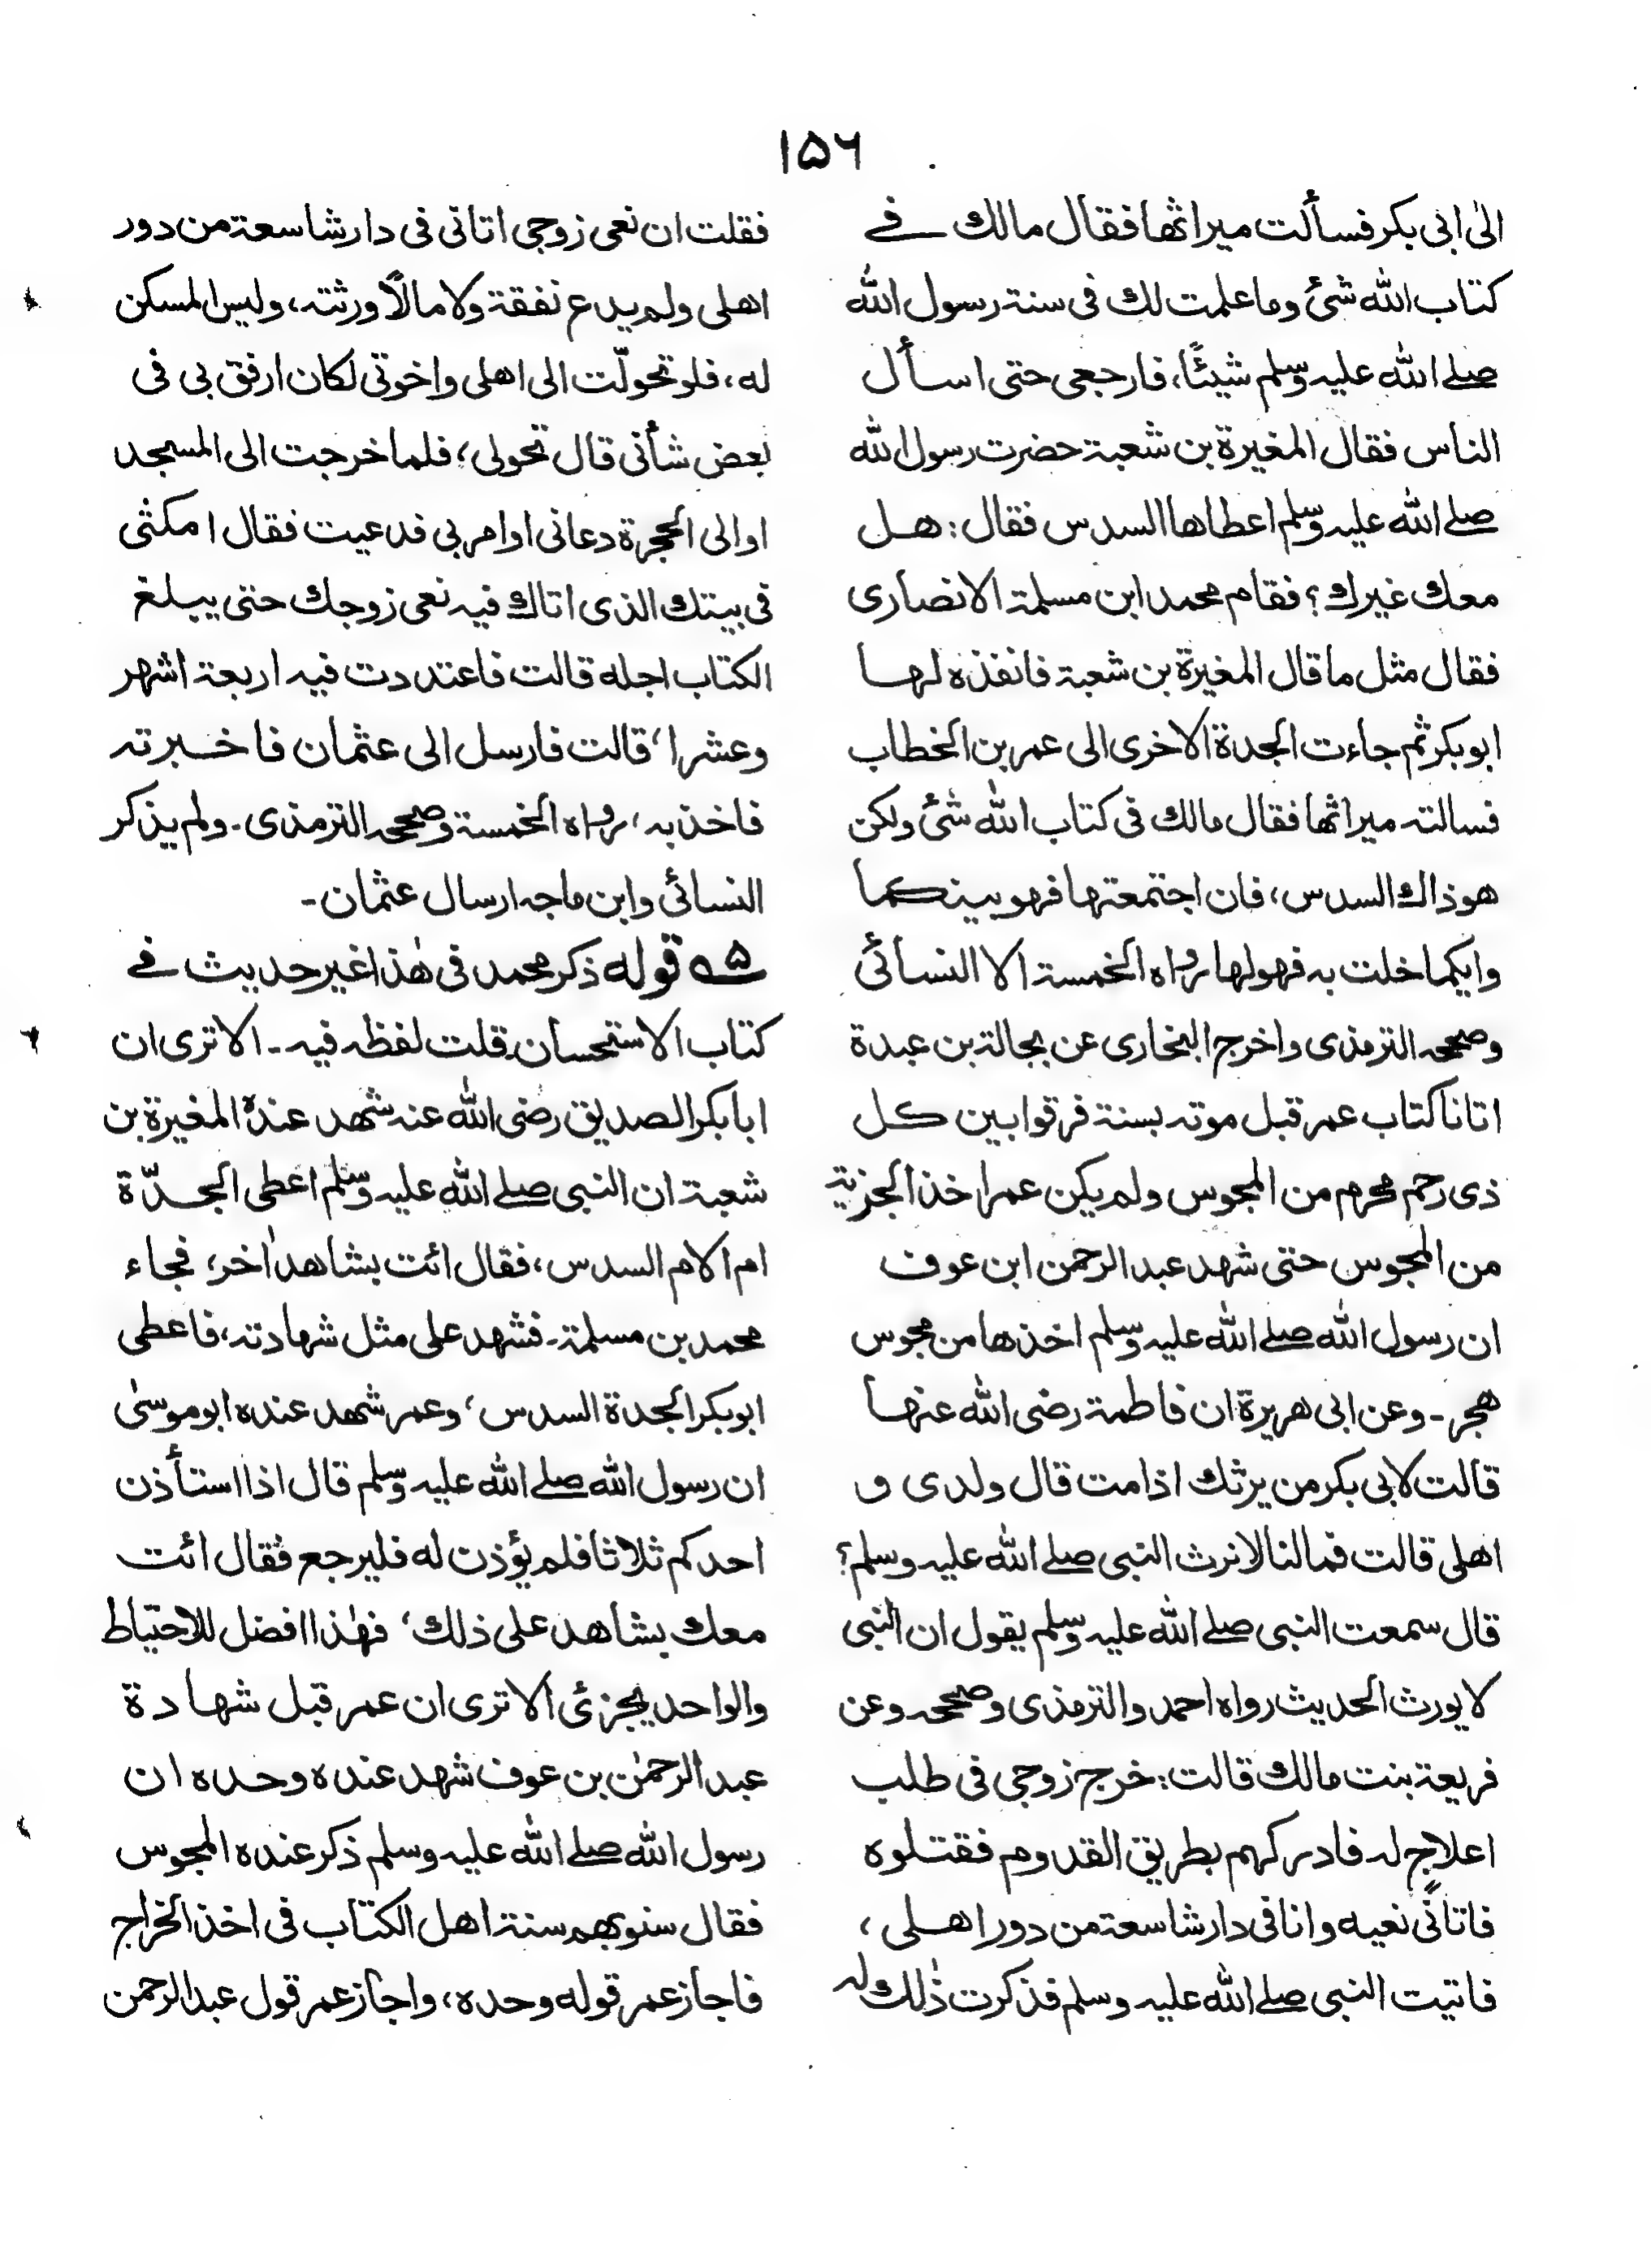 ١٥٦
الیٰ ابی بکر فسألت میراثھا فقال مالك فے
کتاب اللہ شئ وما علمت لك فی سنة رسول اللہ
صلے اللہ علیہ وسلم شیئًا، فارجعی حتی اسأل
الناس فقال المغیرة بن شعبة حضرت رسول اللہ
صلے اللہ علیہ وسلم اعطاھا السدس فقال: ھل
معك غیرك؟ فقام محمد ابن مسلمة الانصاری
فقال مثل ما قال المغیرة بن شعبة فانفذه لہا
ابوبکر ثم جاءت الجدة الاخری الی عمر بن الخطاب
فسالتہ میراثھا فقال مالك فی کتاب اللہ شئ ولکن
ھو ذاك السدس، فان اجتمعتہا فہو بینکما
وایکما خلت به فہو لہا رواہ الخمسة الا النسائی
وصححہ الترمذی واخرج البخاری عن بجالة بن عبدة
اتانا کتاب عمر قبل موتہ بسنة فرقوا بین کل
ذی رحم محرم من المجوس ولم یکن عمر اخذ الجزیة
من المجوس حتی شہد عبد الرحمن ابن عوف
ان رسول اللہ صلے اللہ علیہ وسلم اخذھا من مجوس
ھجر۔ وعن ابی ھریرة ان فاطمة رضی اللہ عنہا
قالت لابی بکر من یرثك اذا مت قال ولدی و
اھلی قالت فمالنا لا نرث النبی صلے اللہ علیہ وسلم؟
قال سمعت النبی صلے اللہ علیہ وسلم یقول ان النبی
لا یورث الحدیث رواہ احمد والترمذی وصححہ وعن
فریعة بنت مالك قالت: خرج زوجی فی طلب
اعلاج لہ فادرکہم بطریق القدوم فقتلوہ
فاتانی نعیہ وانا فی دار شاسعة من دور اھلی،
فاتیت النبی صلے اللہ علیہ وسلم فذکرت ذٰلك لہ
فقلت ان نعی زوجی اتانی فی دار شاسعة من دور
اھلی ولم یدع نفقة ولا مالًا ورثتہ، ولیس المسکن
له، فلو تحولّت الی اھلی واخوتی لکان ارفق بی فی
بعض شأنی قال تحولی، فلما خرجت الی المسجد
او الی الحجرة دعانی او امر بی فدعیت فقال امکثی
فی بیتك الذی اتاك فیہ نعی زوجك حتی یبلغ
الکتاب اجله قالت فاعتددت فیہ اربعة اشہر
وعشرا، قالت فارسل الی عثمان فاخبرتہ
فاخذ به، رواہ الخمسة وصححہ الترمذی۔ ولم یذکر
النسائی وابن ماجہ ارسال عثمان۔
۵؎ قوله ذکر محمد فی ھٰذا غیر حدیث فے
کتاب الاستحسان قلت لفظہ فیہ۔ الا تری ان
ابا بکر الصدیق رضی اللہ عنہ شھد عندہ المغیرة بن
شعبة ان النبی صلے اللہ علیہ وسلم اعطی الجدّة
ام الام السدس، فقال ائت بشاھد اٰخر، فجاء
محمد بن مسلمة۔ فشھد علی مثل شہادتہ، فاعطی
ابوبکر الجدة السدس، وعمر شھد عندہ ابوموسیٰ
ان رسول اللہ صلے اللہ علیہ وسلم قال اذا استأذن
احدکم ثلاثا فلم یؤذن له فلیرجع فقال ائت
معك بشاھد علی ذلك، فھٰذا افضل للاحتیاط
والواحد یجزئ الا تری ان عمر قبل شہادة
عبد الرحمٰن بن عوف شہد عندہ وحدہ ان
رسول اللہ صلے اللہ علیہ وسلم ذکر عندہ المجوس
فقال سنوبھم سنة اھل الکتاب فی اخذ الخراج
فاجاز عمر قوله وحدہ، واجاز عمر قول عبد الرحمن